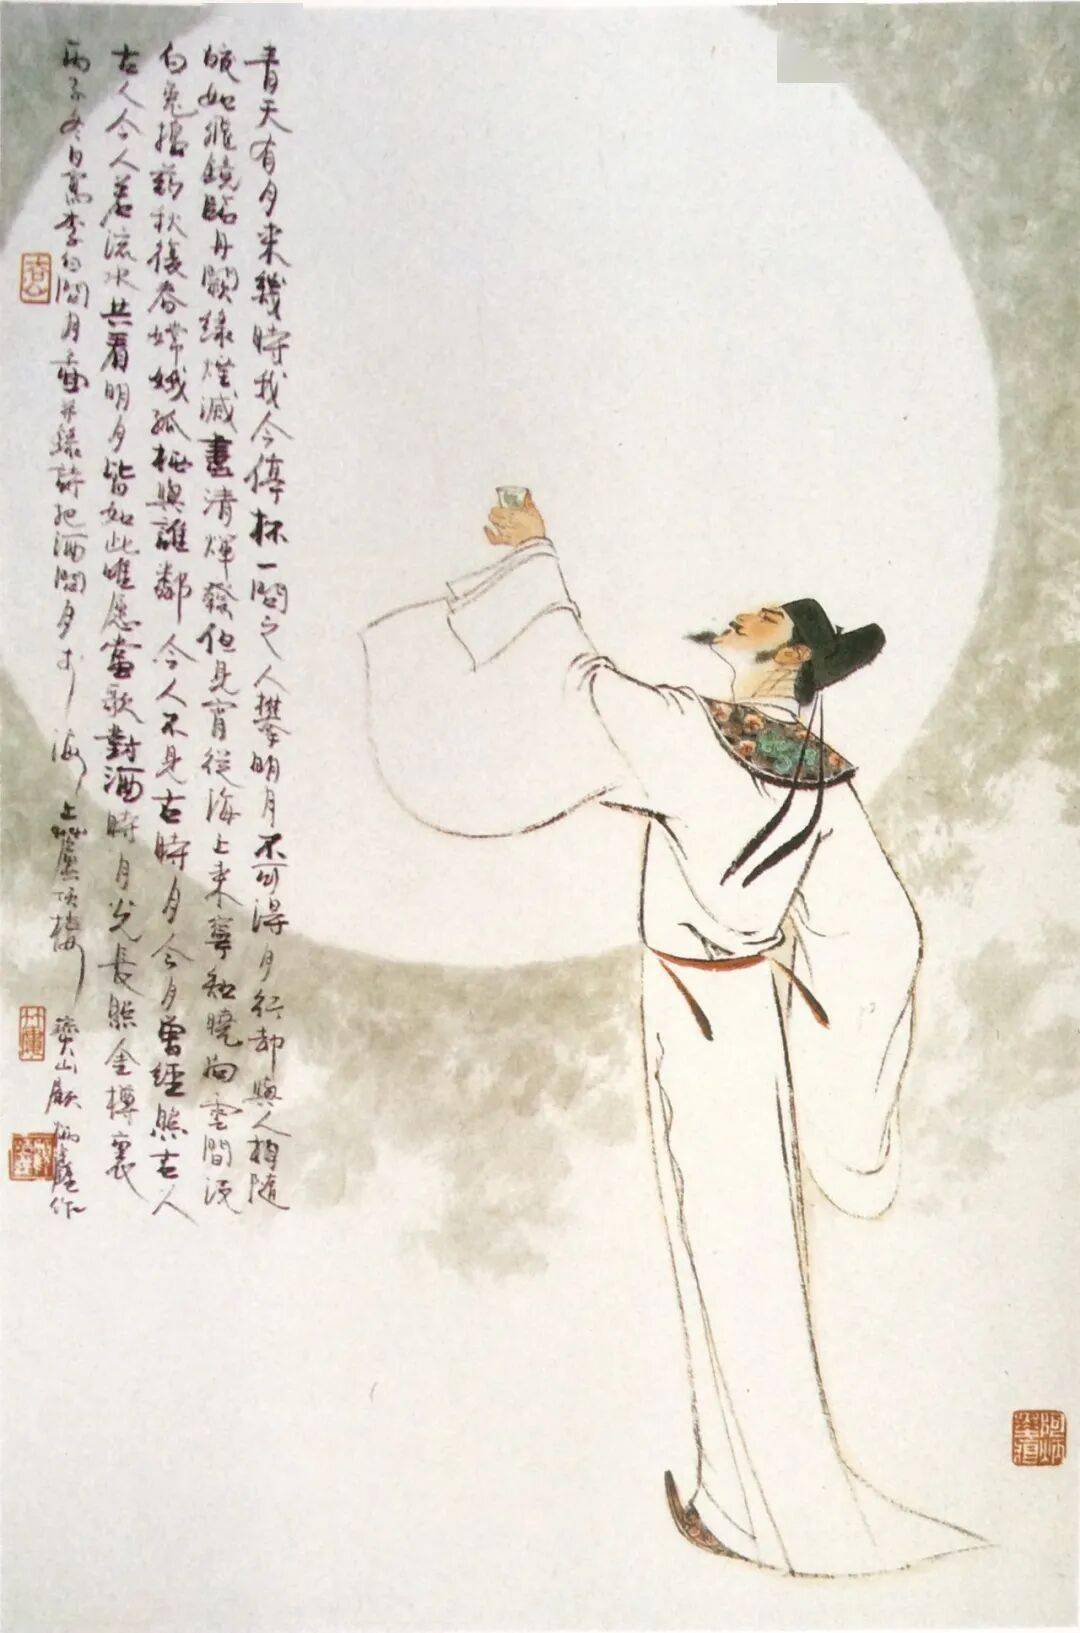 青天有月来幾時我今停杯一問之人攀明月不可得月行却與人相隨
皎如飛鏡臨丹闕緑煙滅盡清輝發但見宵從海上来寧知曉向雲間没
白兔搗药秋復春嫦娥孤栖與誰鄰今人不見古時月今月曾經照古人
古人今人若流水共看明月皆如此唯愿當歌對酒時月光長照金樽裏
丙子冬日寫李白問月畫并録詩把酒問月于海上廬頂樓寶山顧炳鑫作